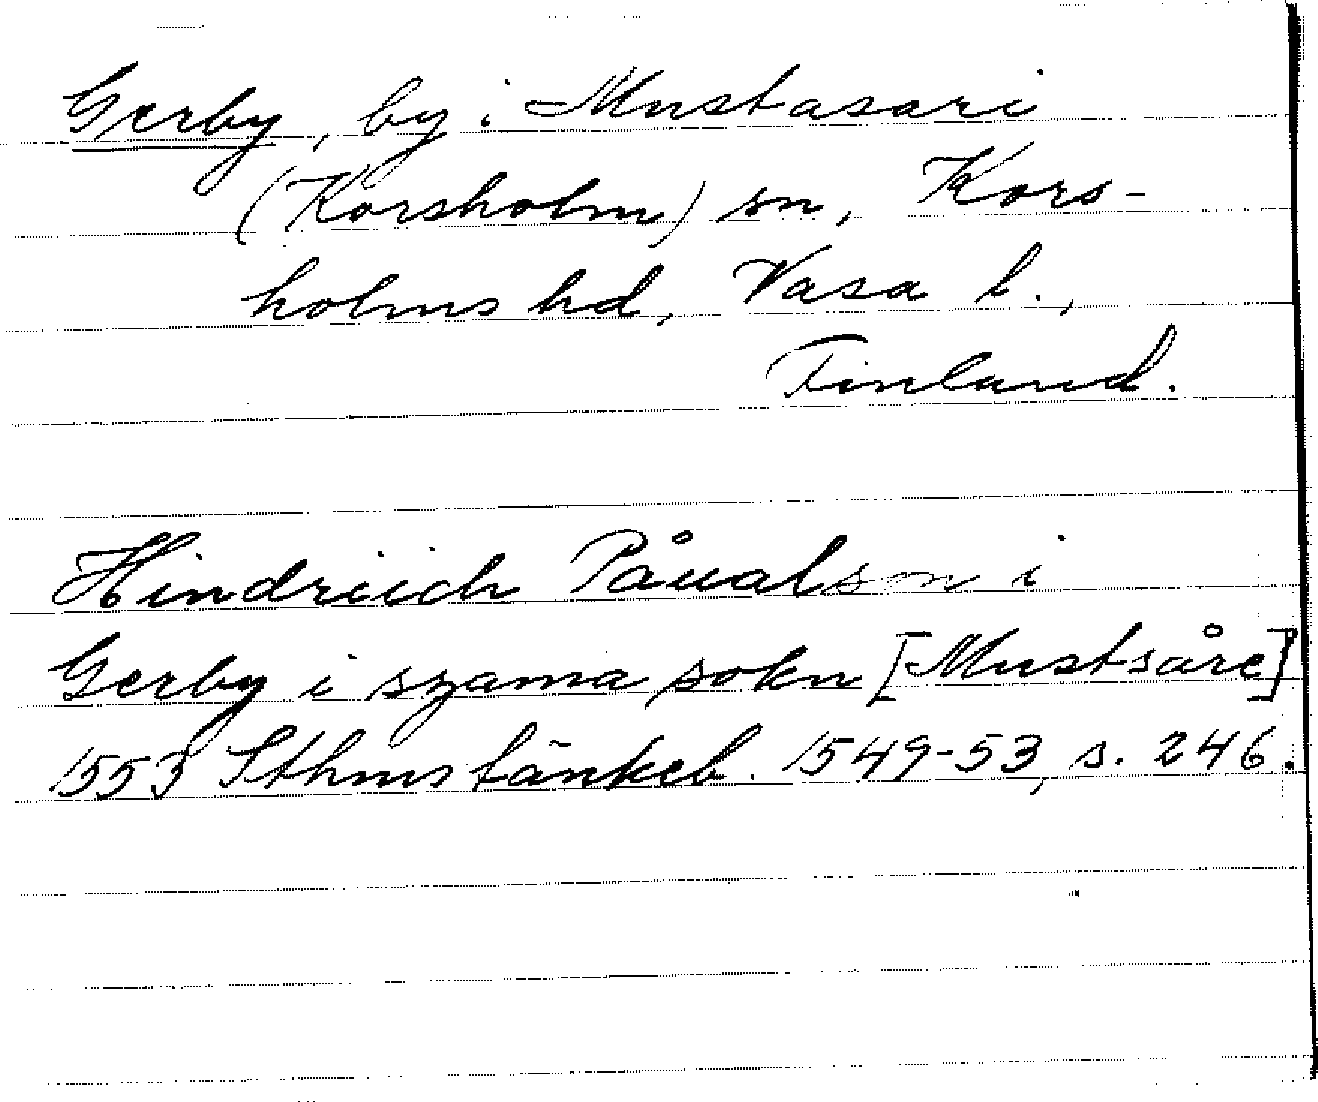 Gerby, by i Mustasari
(Korsholm) sn, Kors-
holms hd, Vasa l.,
Finland.
Hindriich Påualson i
Gerby i szama sokn [Mustsåre]
1553 Sthms tänkeb. 1549-53, s. 246.